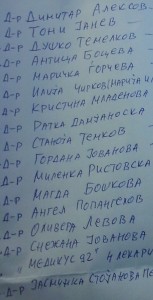 Д-р Димитар Алексов
Д-р Тони Јанев
Д-р Душко Темелков
Д-р Антица Боцева
Д-р Маричка Ѓорчева
Д-р Илија Чипков
Д-р Кристина Младенова
Д-р Ратка
Д-р Станоја Тенков
Д-р Гордана Јованова
Д-р Миленка Ристовска
Д-р Магда Бошкова
Д-р Ангел Попангелов
Д-р Оливера Левова
Д-р Снежана Јованова
Медикус 92" 4 лекари
Д-р Јасминка Стојанова